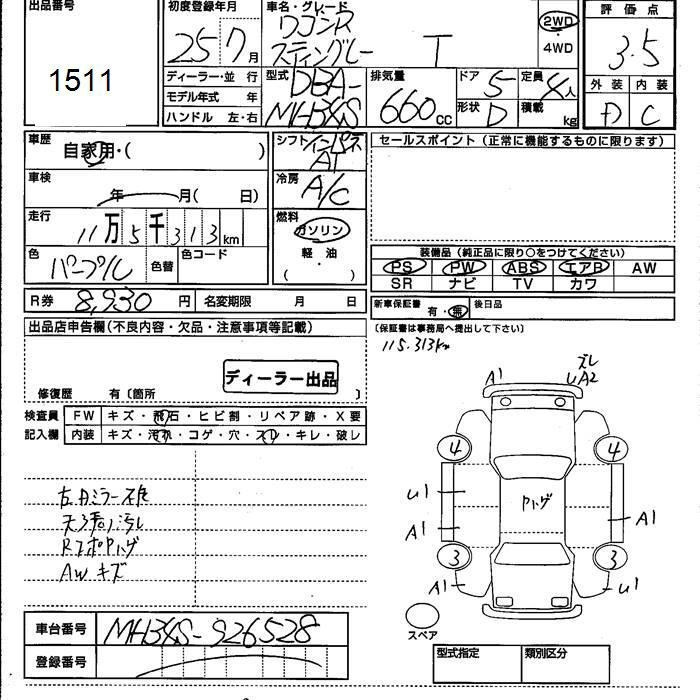 出品番号
1511
初度登録年月
25 7月
車名・グレード
ワゴンR
スティングレー T
2WD
4WD
評価点
3.5
外装 内装
D C
ディーラー・並行
モデル年式 年
ハンドル 左・右
型式
DBA-
MH34S
排気量
660cc
ドア 5
形状 D
定員 4人
積載 kg
車歴
自家用・( )
車検
年 月( 日)
走行
11万5千313km
色
パープル
色替
色コード
R券 8,930円
名変期限 月 日
シフト
インパネ
AT
冷房
A/C
燃料
ガソリン
軽油
( ・ )
セールスポイント(正常に機能するものに限ります)
装備品(純正品に限り○をつけてください)
PS PW ABS エアB AW
SR ナビ TV カワ
新車保証書 有・無
後日品
(保証書は事務局へ提出して下さい)
115.313km
出品店申告欄(不良内容・欠品・注意事項等記載)
ディーラー出品
修復歴 有〔箇所 〕
検査員
記入欄
FW キズ・飛石・ヒビ割・リペア跡・X要
内装 キズ・汚れ・コゲ・穴・スレ・キレ・破レ
天張り汚れ
RアポPハゲ
AWキズ
A1
ズレ
UA2
4
4
U1
A1
Pハゲ
A1
3
3
A1
U1
スペア
車台番号 MH34S-926528
登録番号
型式指定
類別区分